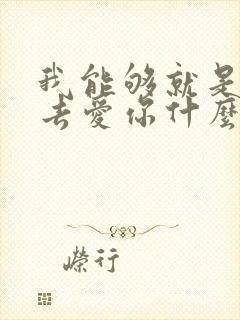 我能够就是
去爱你什麼
荣行